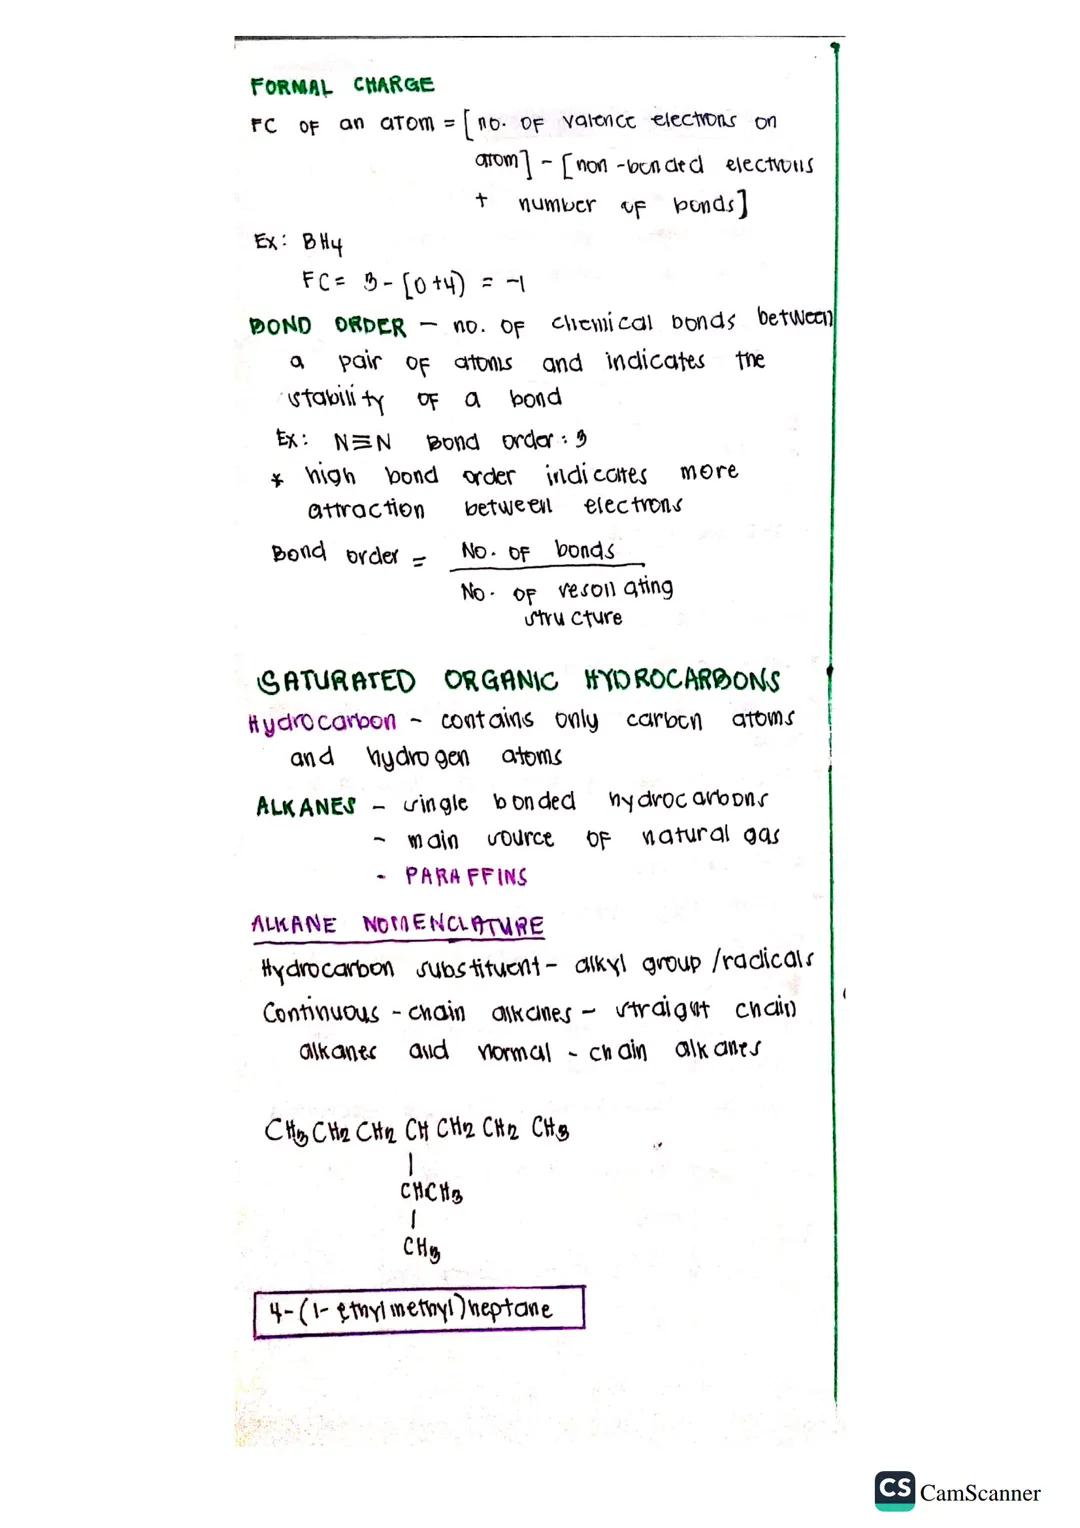 FORMAL CHARGE
FC OF an atom = [no. OF valence electrons on
atom] - [non-bonded electrons
+ number of bonds]
Ex: BH4
FC = 3 - [0+4) = -1
BOND ORDER - no. OF chemical bonds between
a pair OF atoms and indicates the
stability OF a bond
Ex: N≡N Bond order: 3
* high bond order indicates more
attraction between electrons
Bond order = No. OF bonds
No. OF resonating
structure
SATURATED ORGANIC HYDROCARBONS
Hydrocarbon - contains only carbon atoms
and hydrogen atoms
ALKANES - single bonded hydrocarbons
- main source OF natural gas
- PARAFFINS
ALKANE NOMENCLATURE
Hydrocarbon substituent - alkyl group /radicals
Continuous - chain alkanes - straight chain
alkanes and normal - chain alkanes
CH3 CH2 CH2 CH CH2 CH2 CH3
|
CHCH3
|
CH3
4-(1-ethylmethyl)heptane
CS CamScanner